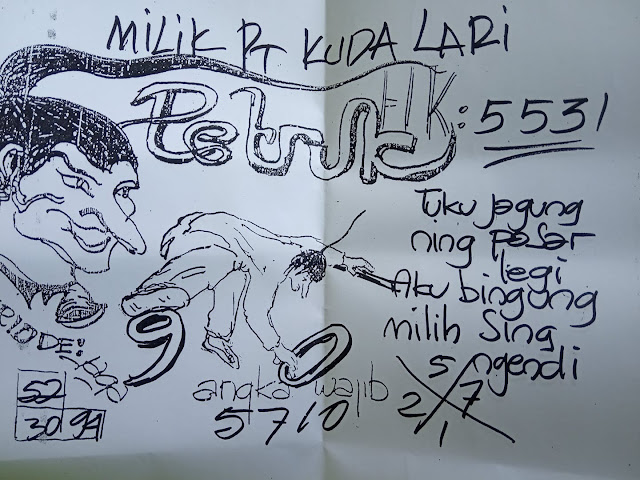 MILIK PT KUDA LARI
Petruk
FIK: 5531
Tuku jagung
ning pasar
legi
Aku bingung
milih Sing
ngendi
9 0
angka wajib
5710
52
30 94
5
2 7
1